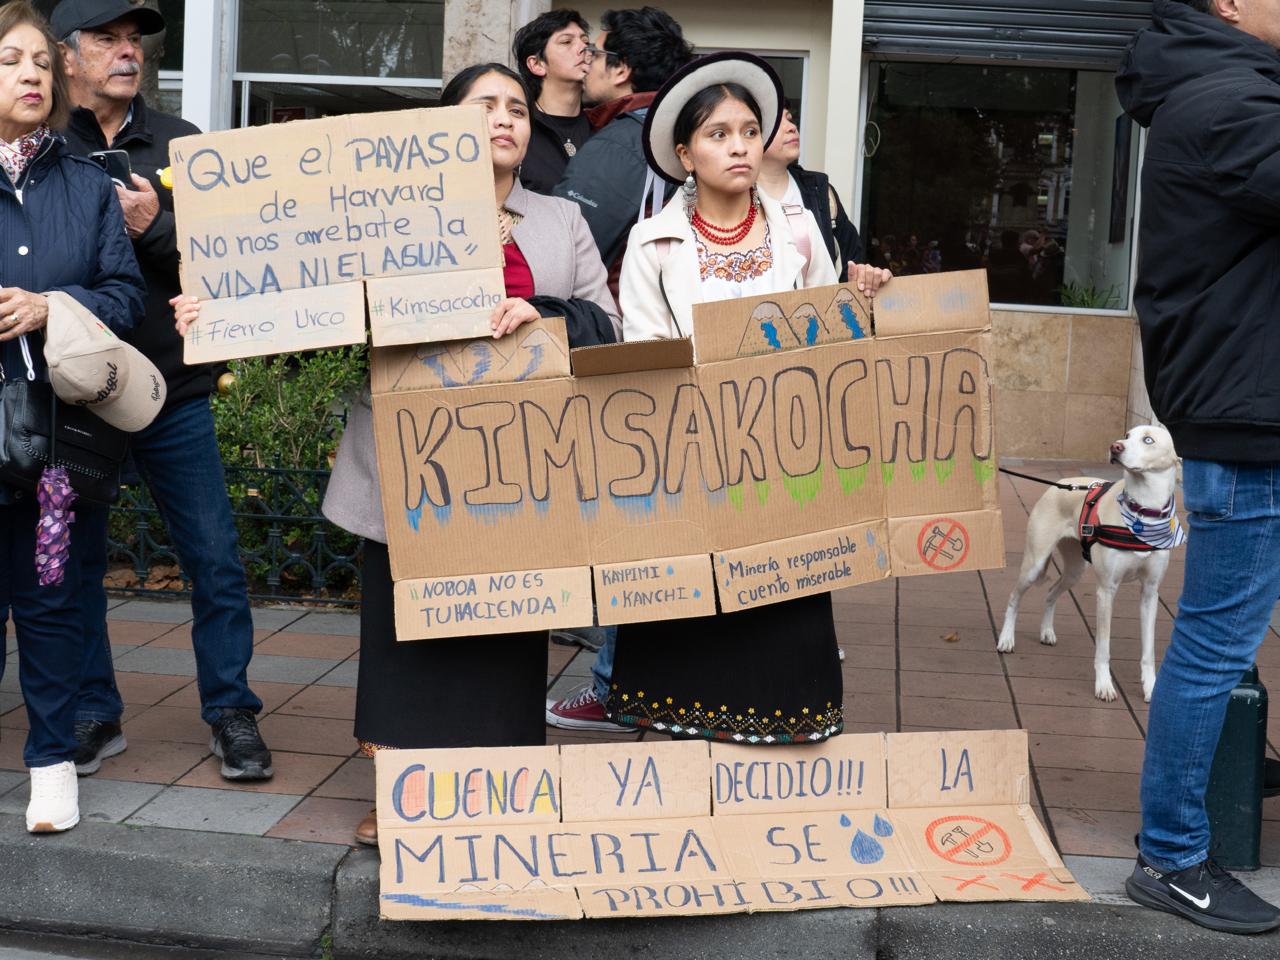 "Que el PAYASO
de Harvard
No nos arrebate la
VIDA NI EL AGUA"
#Fierro Urco
#Kimsacocha
KIMSAKOCHA
"NOBOA NO ES
TU HACIENDA"
KANPIMI
KANCHI
Minería responsable
cuento miserable
CUENCA YA DECIDIO!!! LA
MINERIA SE
PROHIBIO!!!
Portugal
Columbia